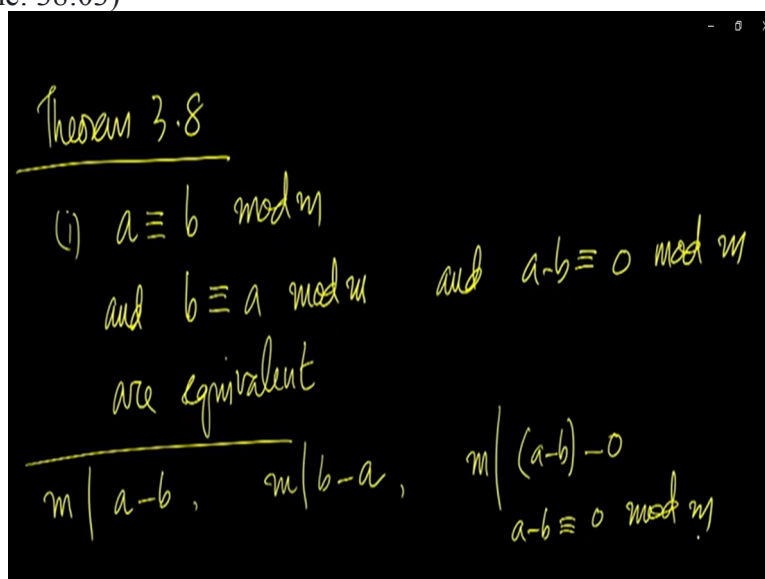 Theorem 3.8
(i) a ≡ b mod m
and b ≡ a mod m and a-b ≡ 0 mod m
are equivalent
m | a-b, m | b-a, m | (a-b)-0
a-b ≡ 0 mod m